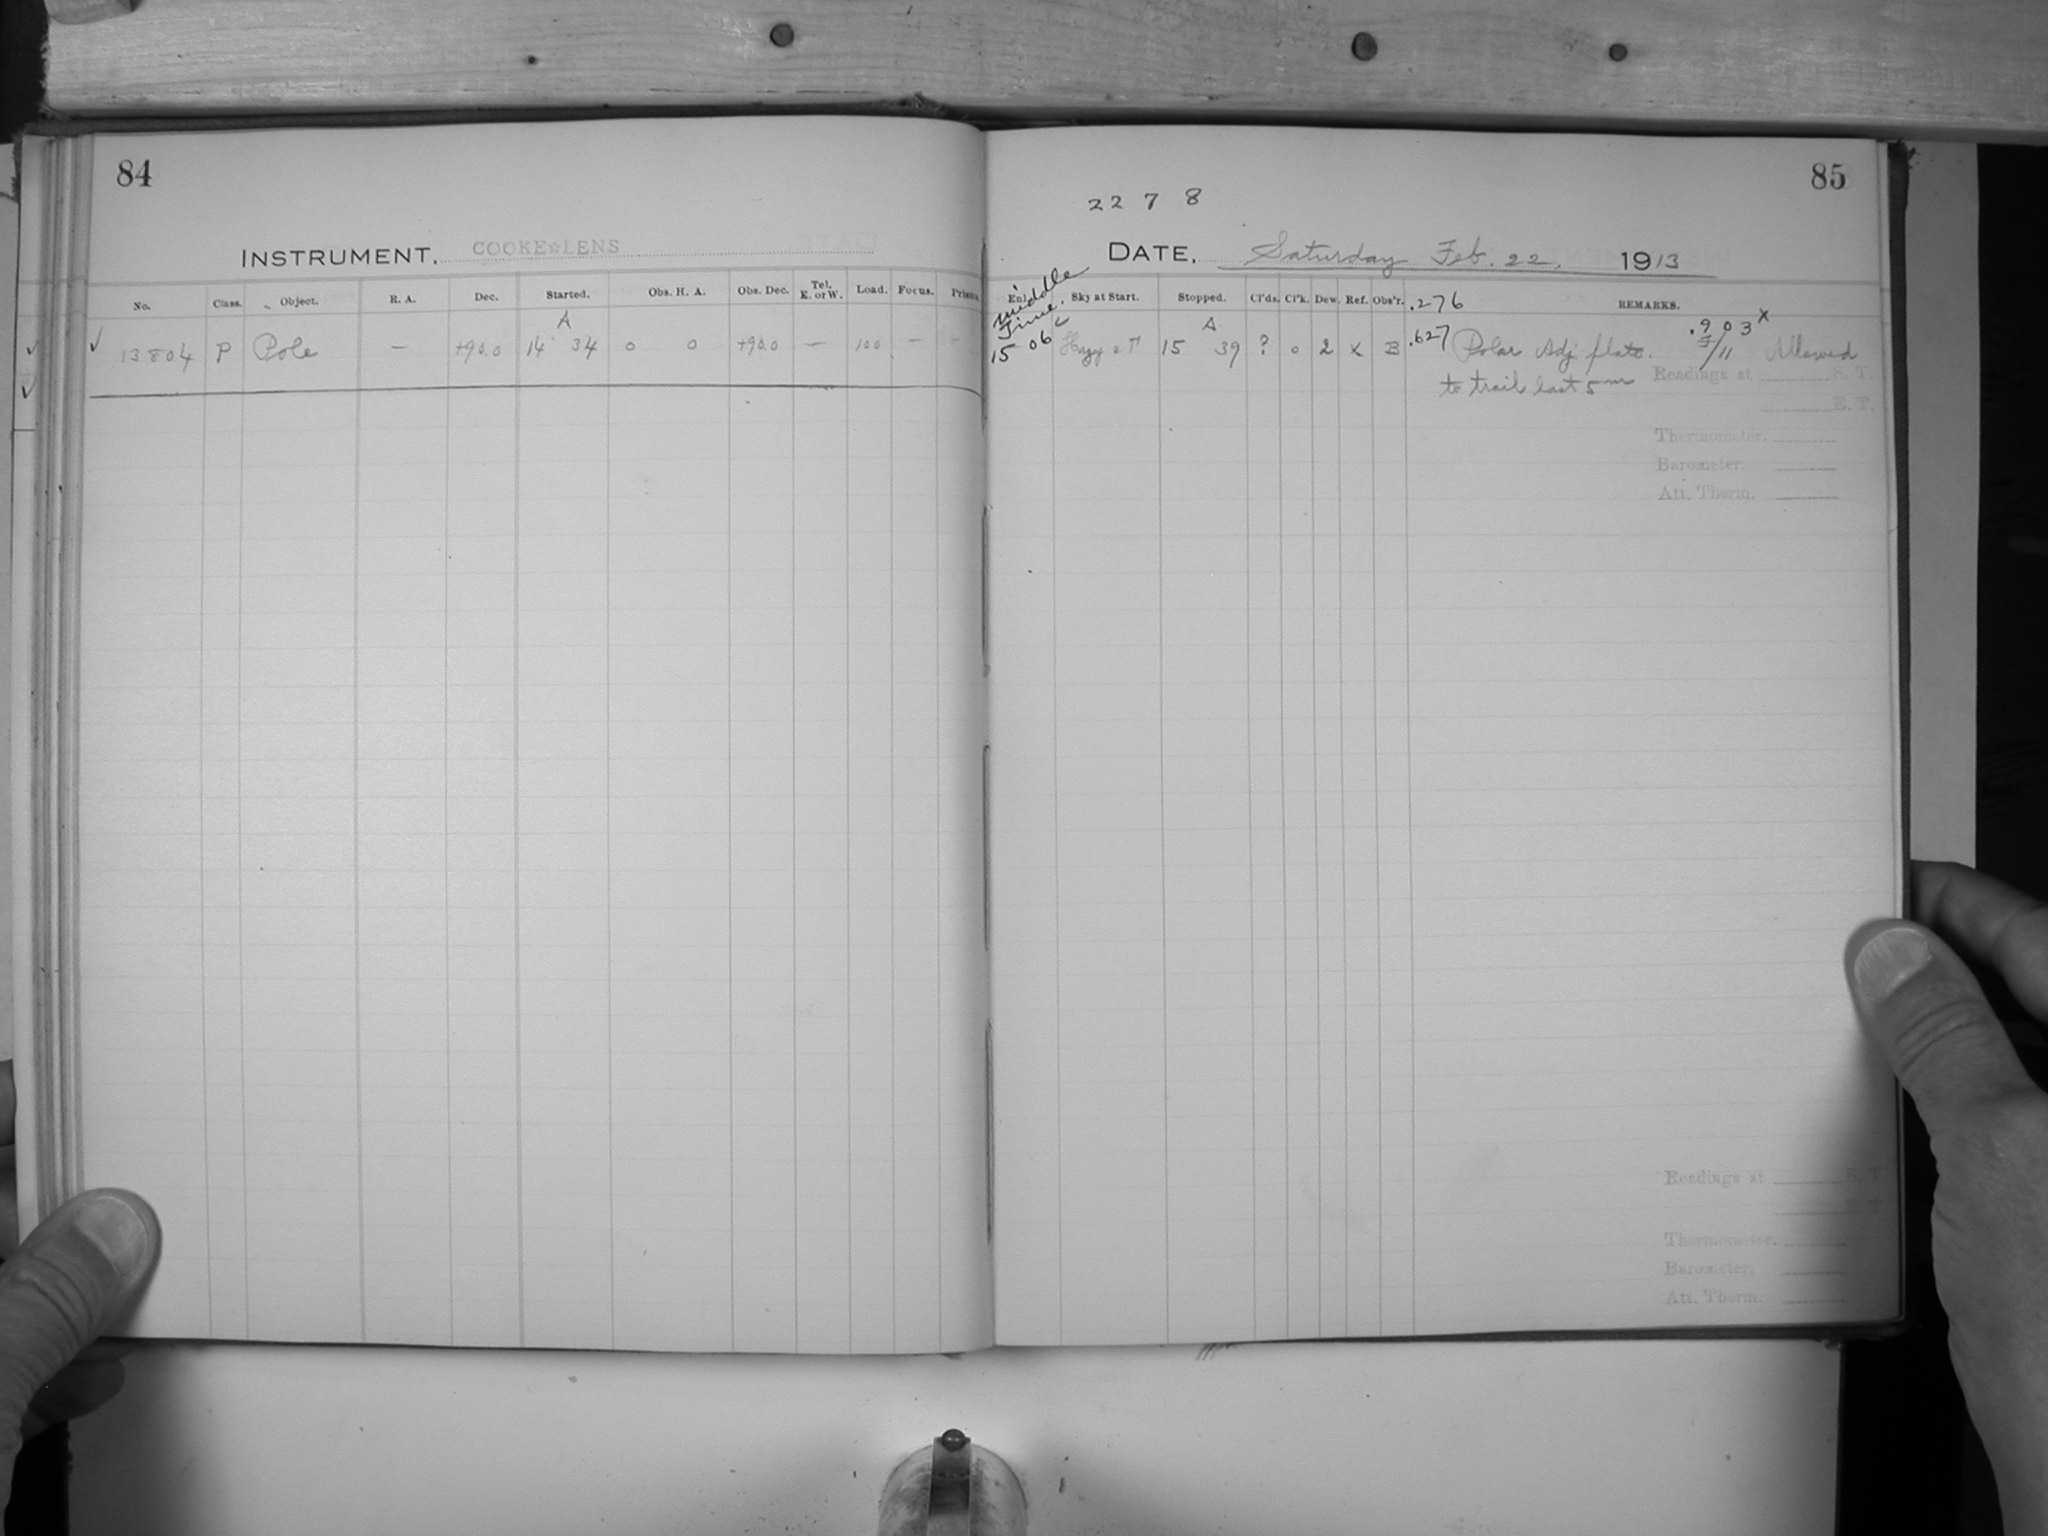 84
INSTRUMENT, COOKE☆LENS
No. Class. Object. R. A. Dec. Started. Obs. H. A. Obs. Dec. Tel. E. or W. Load. Focus. Prisms
A
✓ 13804 P Pole — +90.0 14 34 0 0 +90.0 — 100 — —
85
22 7 8
DATE, Saturday Feb. 22, 1913
middle Time.
Sky at Start. Stopped. Cl'ds. Cl'k. Dew. Ref. Obs'r. .276 REMARKS.
A
15 06 Hazy 15 39 ? 0 2 x B .627 Polar Adj. plate. .903 x Allowed
to trail last 5m
Readings at S. T.
E. T.
Thermometer.
Barometer.
Att. Therm.
Readings at S. T.
E. T.
Thermometer.
Barometer.
Att. Therm.